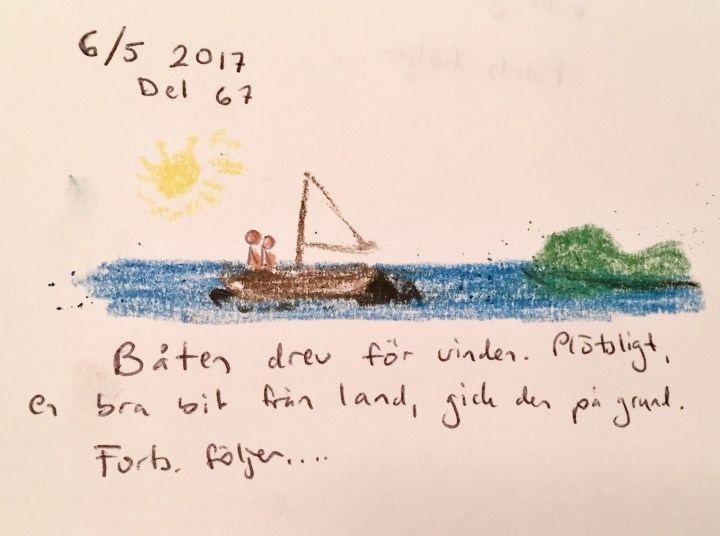 6/5 2017
Del 67
Båten drev för vinden. Plötsligt,
en bra bit från land, gick den på grund.
Forts. följer....